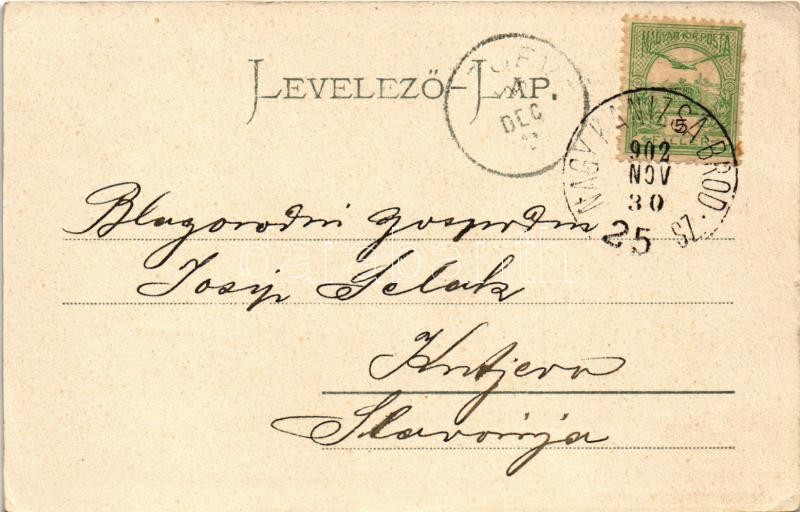 LEVELEZŐ-LAP.
MAGYAR KIR. POSTA
5
DEC
NAGYKANIZSA-BROD
902
NOV
30
SZ.
25
Blagorodni gospodin
Josip Selak
Kutjevo
Slavonija